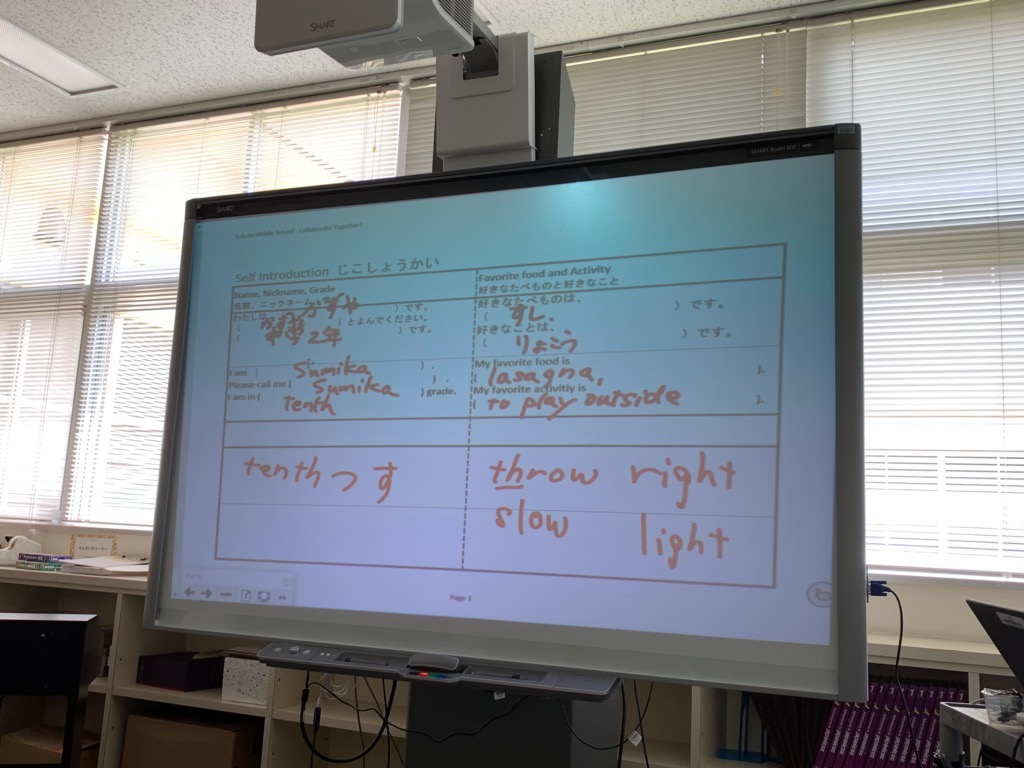 SMART
SMART
SMART Board 800
Yokota Middle School - Collaborate Together!
Self Introduction じこしょうかい
Name, Nickname, Grade
名前、ニックネーム
わたしは、 ) です。
( ) とよんでください。
( 2年 ) です。
I am ( Sumika ) .
Please call me ( Sumika ) .
I am in ( tenth ) grade.
Favorite food and Activity
好きなたべものと好きなこと
好きなたべものは、
( すし. ) です。
好きなことは、
( りょこう ) です。
My favorite food is
( lasagna, ).
My favorite activitiy is
( to play outside ).
tenth つ す
throw right
slow light
Page 1